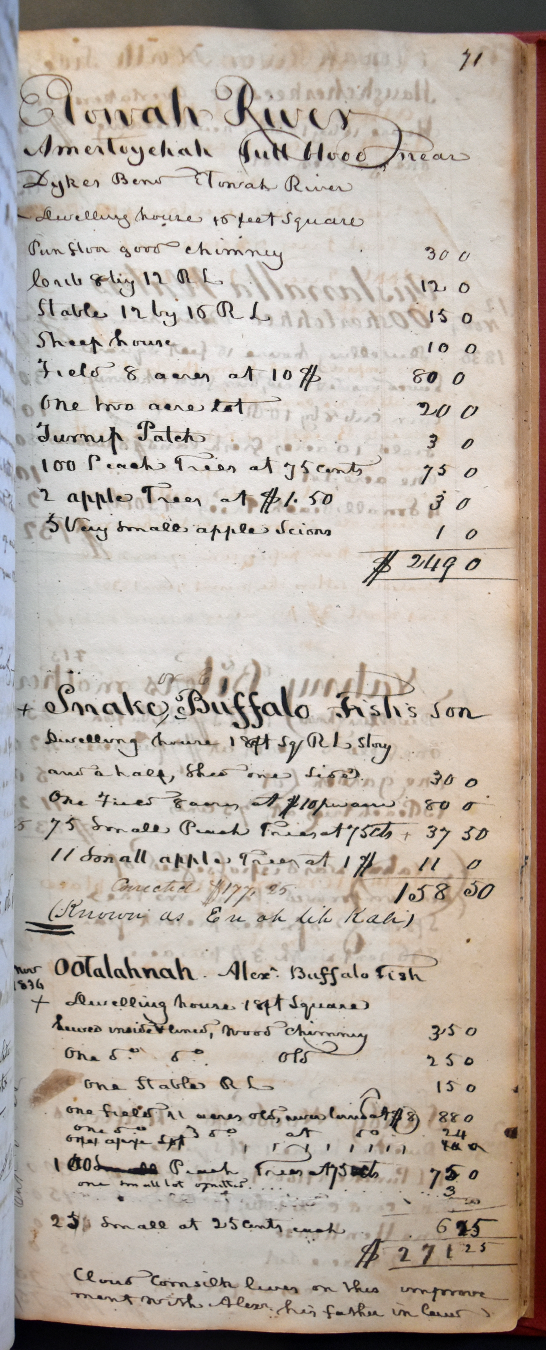 71
Etowah River
Amertoyehah Full blood near
Dykes Bend Etowah River
Dwelling house 16 feet Square
Pun floor good chimney 30 0
12 R L 12 0
Stable 12 by 16 R L 15 0
Sheep house 10 0
Field 8 acres at 10 $ 80 0
One two acre lot 20 0
Turnip Patch 3 0
100 Peach Trees at 75 cents 75 0
2 apple Trees at $1.50 3 0
5 Very small apple Scions 1 0
$ 249 0
or
+ Snake, Buffalo Fish's Son
Dwelling house 18ft Sq R L Story
and a half, Shed one Side 30 0
One Field 8 acres at $10 80 0
75 Small Peach Trees at 75cts + 37 50
11 Small apple Trees at 1 $ 11 0
Corrected $177.25 158 50
(Known as En oh lih Kah)
Nov 1836
Ootalahnah. Alexr. Buffalo Fish
+ Dwelling house 18ft Square
hewed inside & lined, wood chimney 35 0
One do do Old 25 0
One Stable R L 15 0
One field 11 acres old, at $8 88 0
one do 3 do at do 24
100 Peach Trees at 75cts 75 0
one small lot omitted 3
25 Small at 25 cents each 6 25
$ 271 25
Cloud Cornsilk lives on this improve
ment with Alexr. his father in law